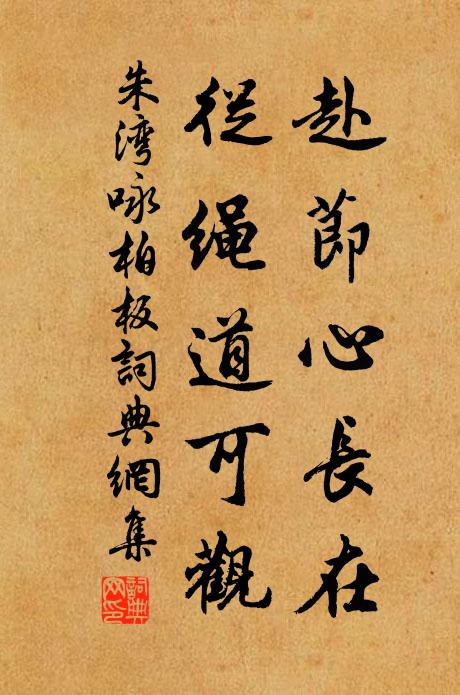 赴節心長在
從繩道可觀
朱湾咏柏板詞典網集
詞典網印